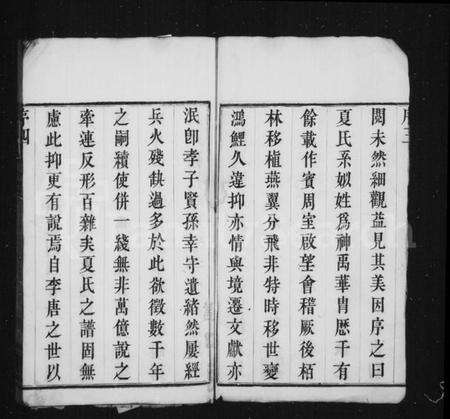 序三
閱未然細觀益見其美因序之曰
夏氏系姒姓爲神禹華胄歷千有
餘載作賓周室啟望會稽厥後栢
林移植燕翼分飛非特時移世變
鴻鯉久違抑亦情與境遷文獻亦
泯卽孝子賢孫幸守遺緒然屢經
兵火殘缺過多於此欲徵數千年
之嗣續使併一綫無非萬億說之
牽連反形百雜矣夏氏之譜固無
慮此抑更有說焉自李唐之世以
序四